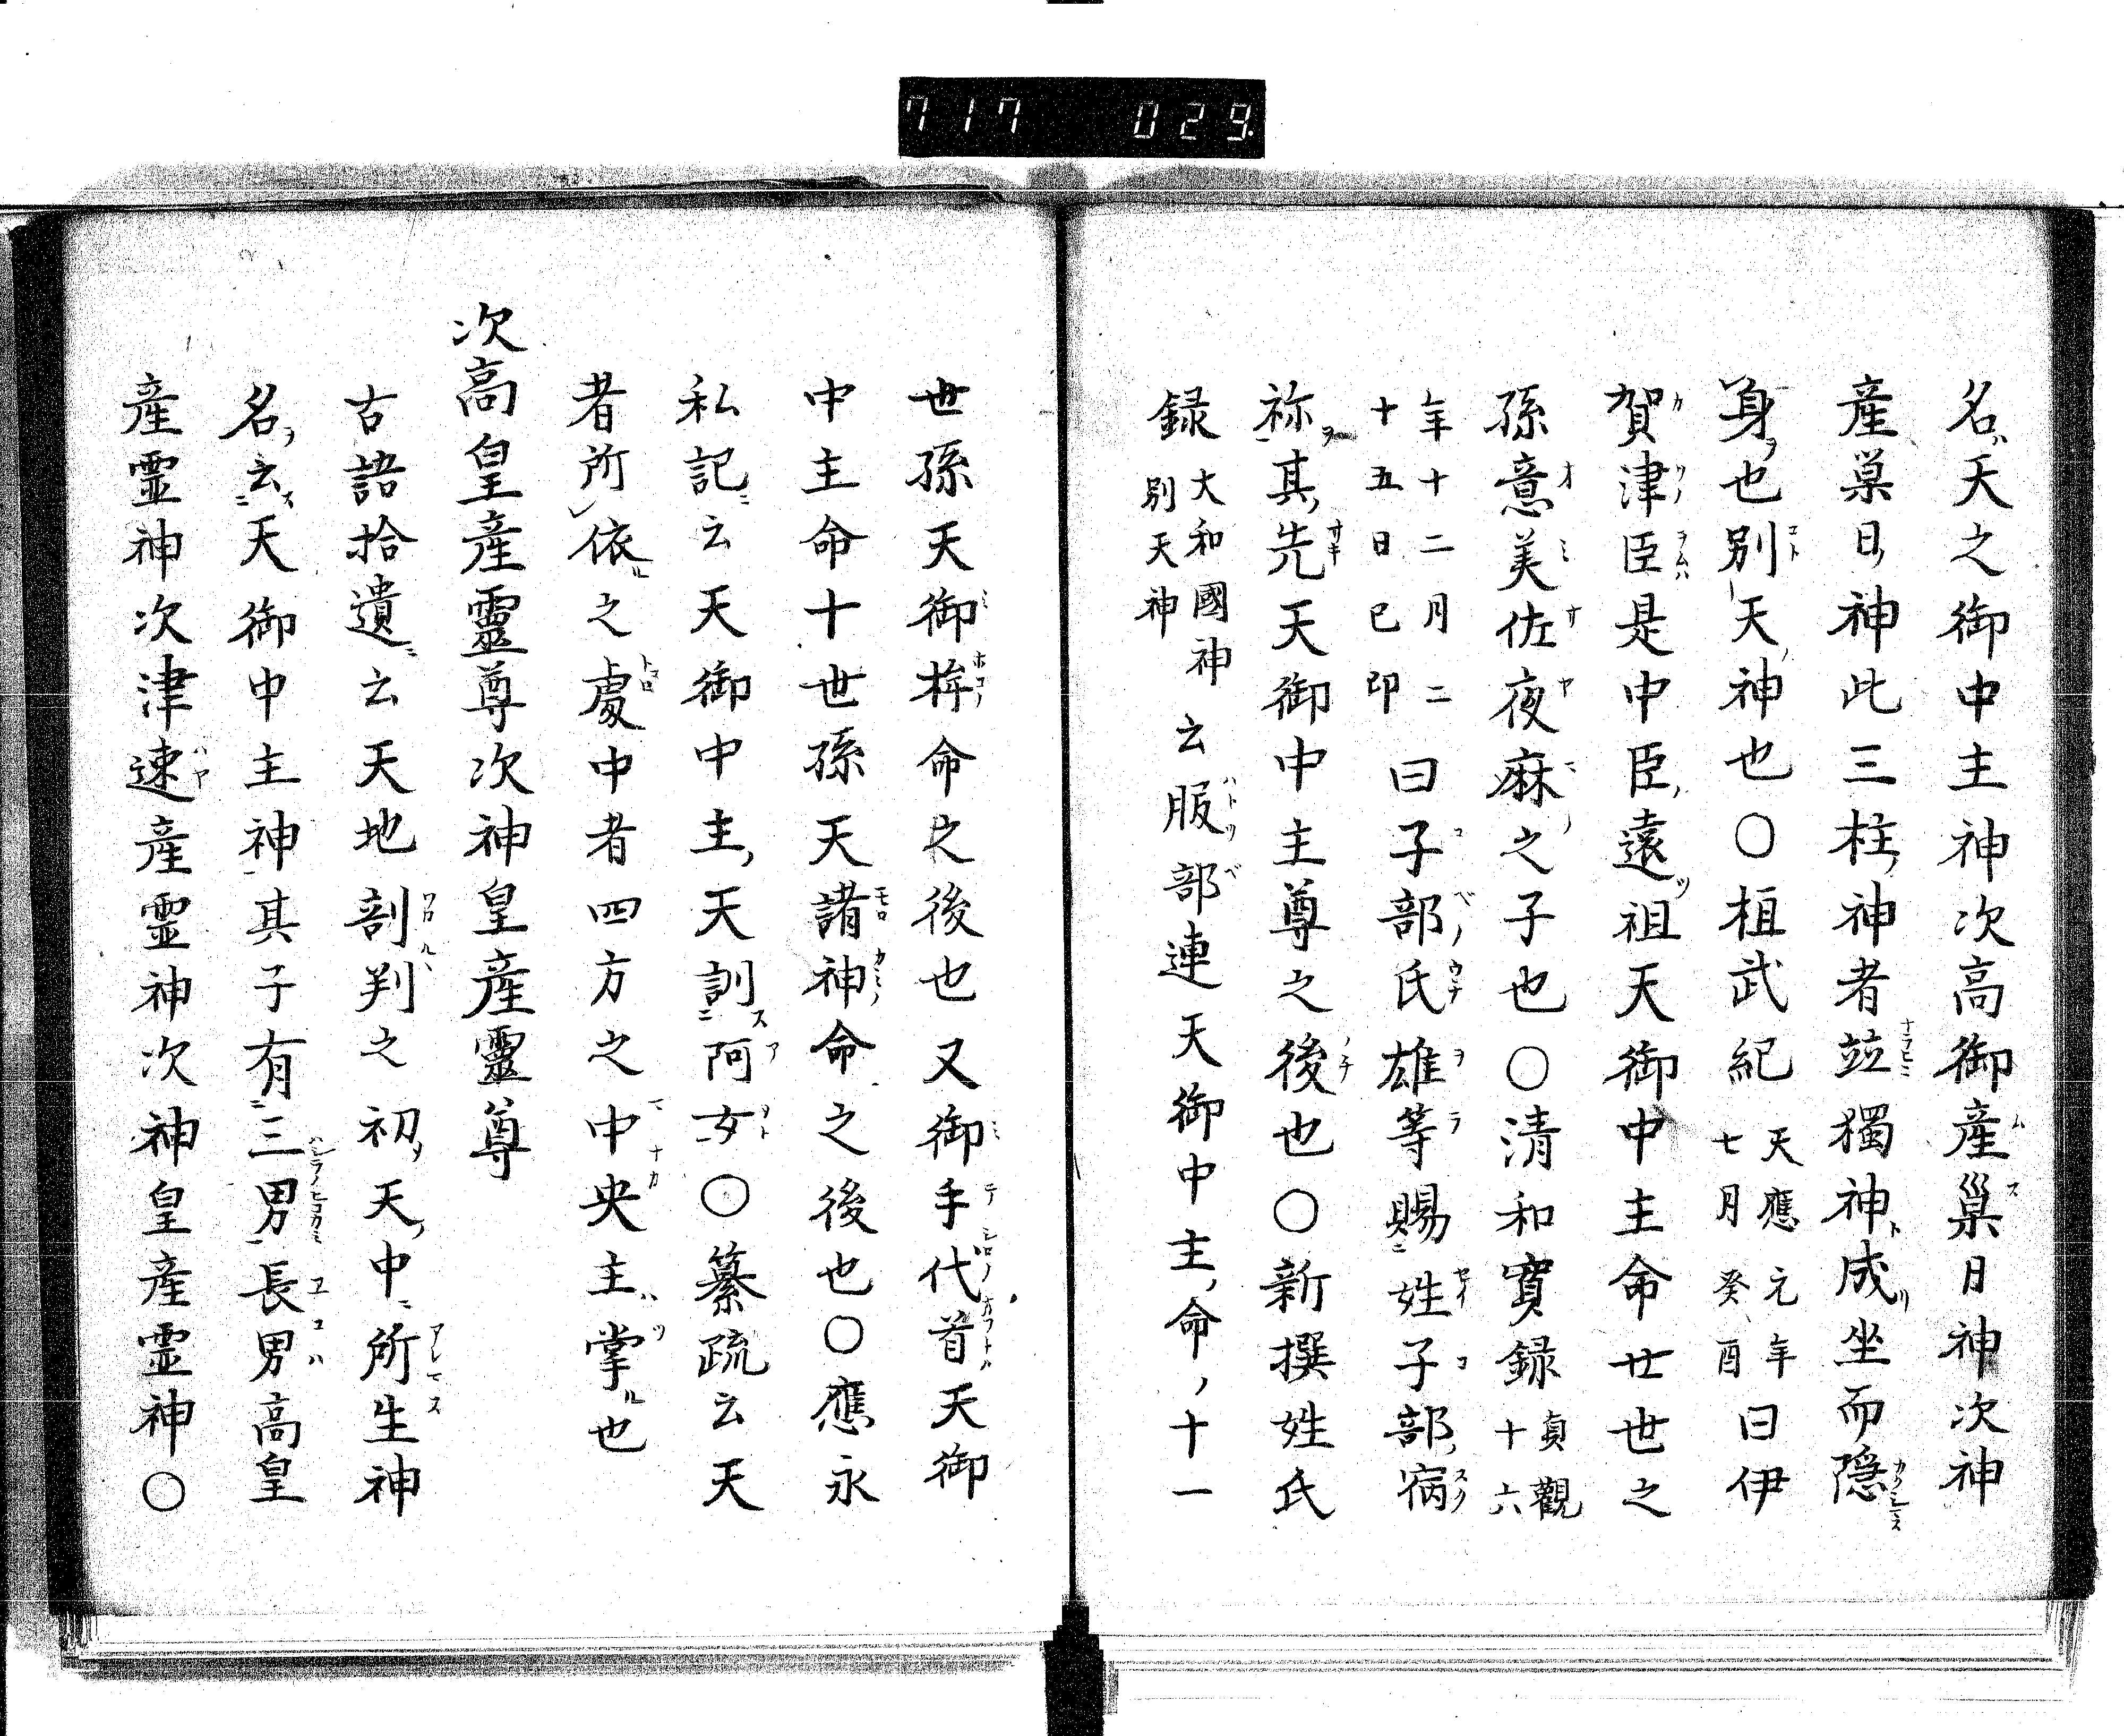 717 029
名天之御中主神次高御産巣日神次神
産巣日神此三柱神者竝獨神成坐而隠
身也別天神也〇桓武紀天應元年七月癸酉曰伊
賀津臣是中臣遠祖天御中主命廿世之
孫意美佐夜麻之子也〇清和實録貞觀十六
年十二月二十五日己卯曰子部氏雄等賜姓子部宿
祢其先天御中主尊之後也〇新撰姓氏
録大和國神別天神云服部連天御中主命十一
世孫天御桙命之後也又御手代首天御
中主命十世孫天諸神命之後也〇應永
私記云天御中主天訓阿女〇纂疏云天
者所依之處中者四方之中央主掌也
次高皇産靈尊次神皇産靈尊
古語拾遺云天地剖判之初天中所生神
名云天御中主神其子有三男長男高皇
産霊神次津速産霊神次神皇産霊神〇